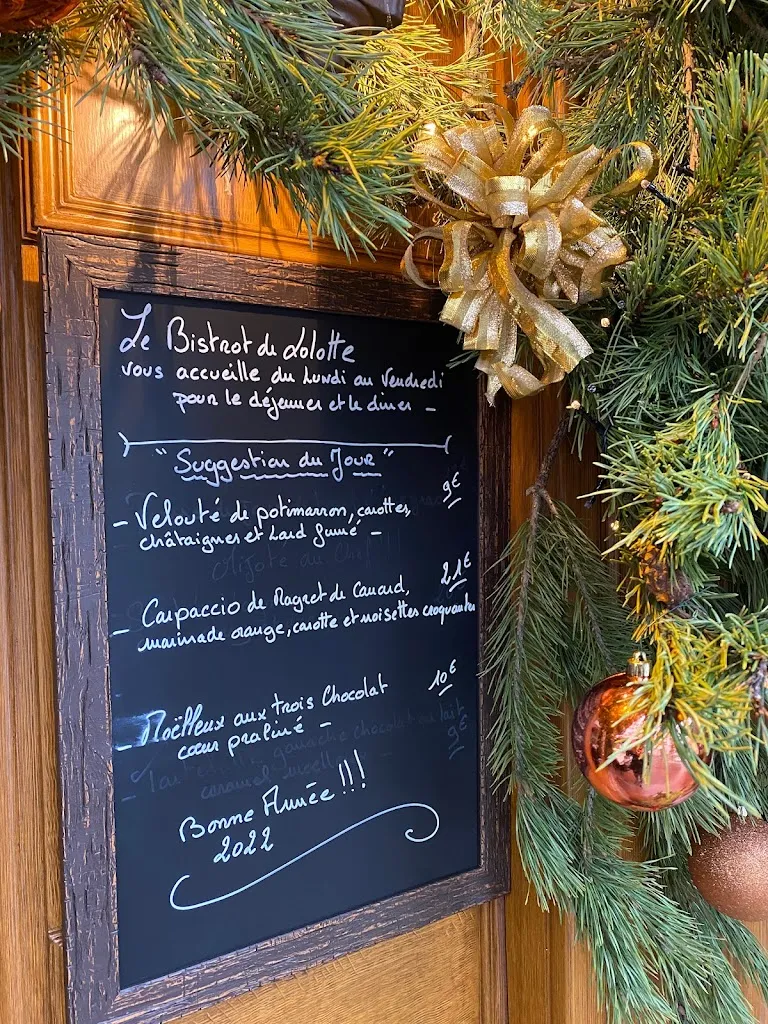 Le Bistrot de Lolotte
vous accueille du Lundi au Vendredi
pour le déjeuner et le diner -
"Suggestion du Jour"
- Velouté de potimarron, carottes, 9€
châtaignes et Lard fumé -
- Carpaccio de Magret de Canard, 21€
marinade orange, carotte et noisettes croquantes
- Moëlleux aux trois Chocolat 10€
coeur praliné -
Bonne Année !!!
2022